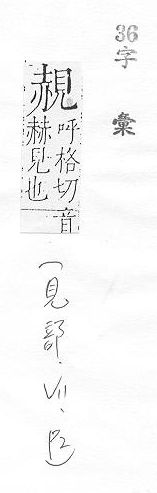 36字 彙
呼格切音
赫見也
(見部.VII.P2)